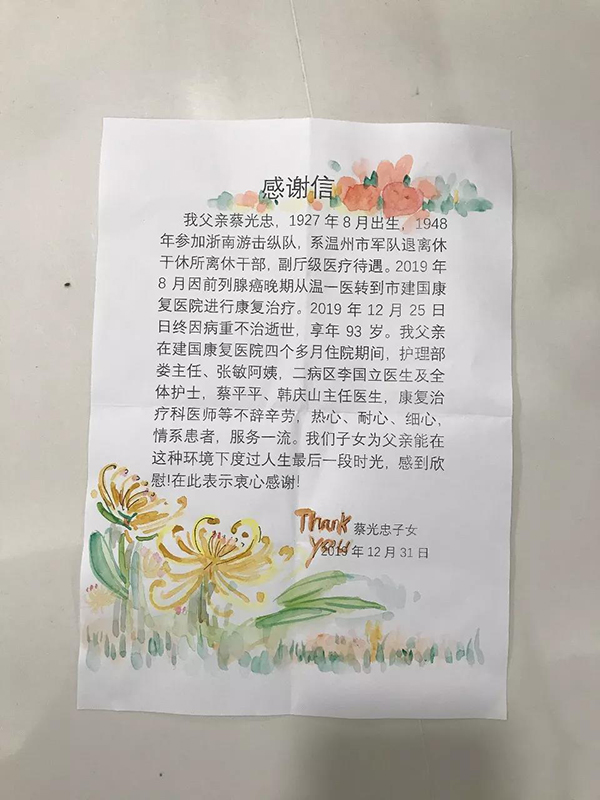 感谢信
我父亲蔡光忠，1927 年 8 月出生，1948
年参加浙南游击纵队，系温州市军队退离休
干休所离休干部，副厅级医疗待遇。2019 年
8 月因前列腺癌晚期从温一医转到市建国康
复医院进行康复治疗。2019 年 12 月 25 日
日终因病重不治逝世，享年 93 岁。我父亲
在建国康复医院四个多月住院期间，护理部
娄主任、张敏阿姨，二病区李国立医生及全
体护士，蔡平平、韩庆山主任医生，康复治
疗科医师等不辞辛劳，热心、耐心、细心，
情系患者，服务一流。我们子女为父亲能在
这种环境下度过人生最后一段时光，感到欣
慰!在此表示衷心感谢!
Thank
you
蔡光忠子女
2019 年 12 月 31 日